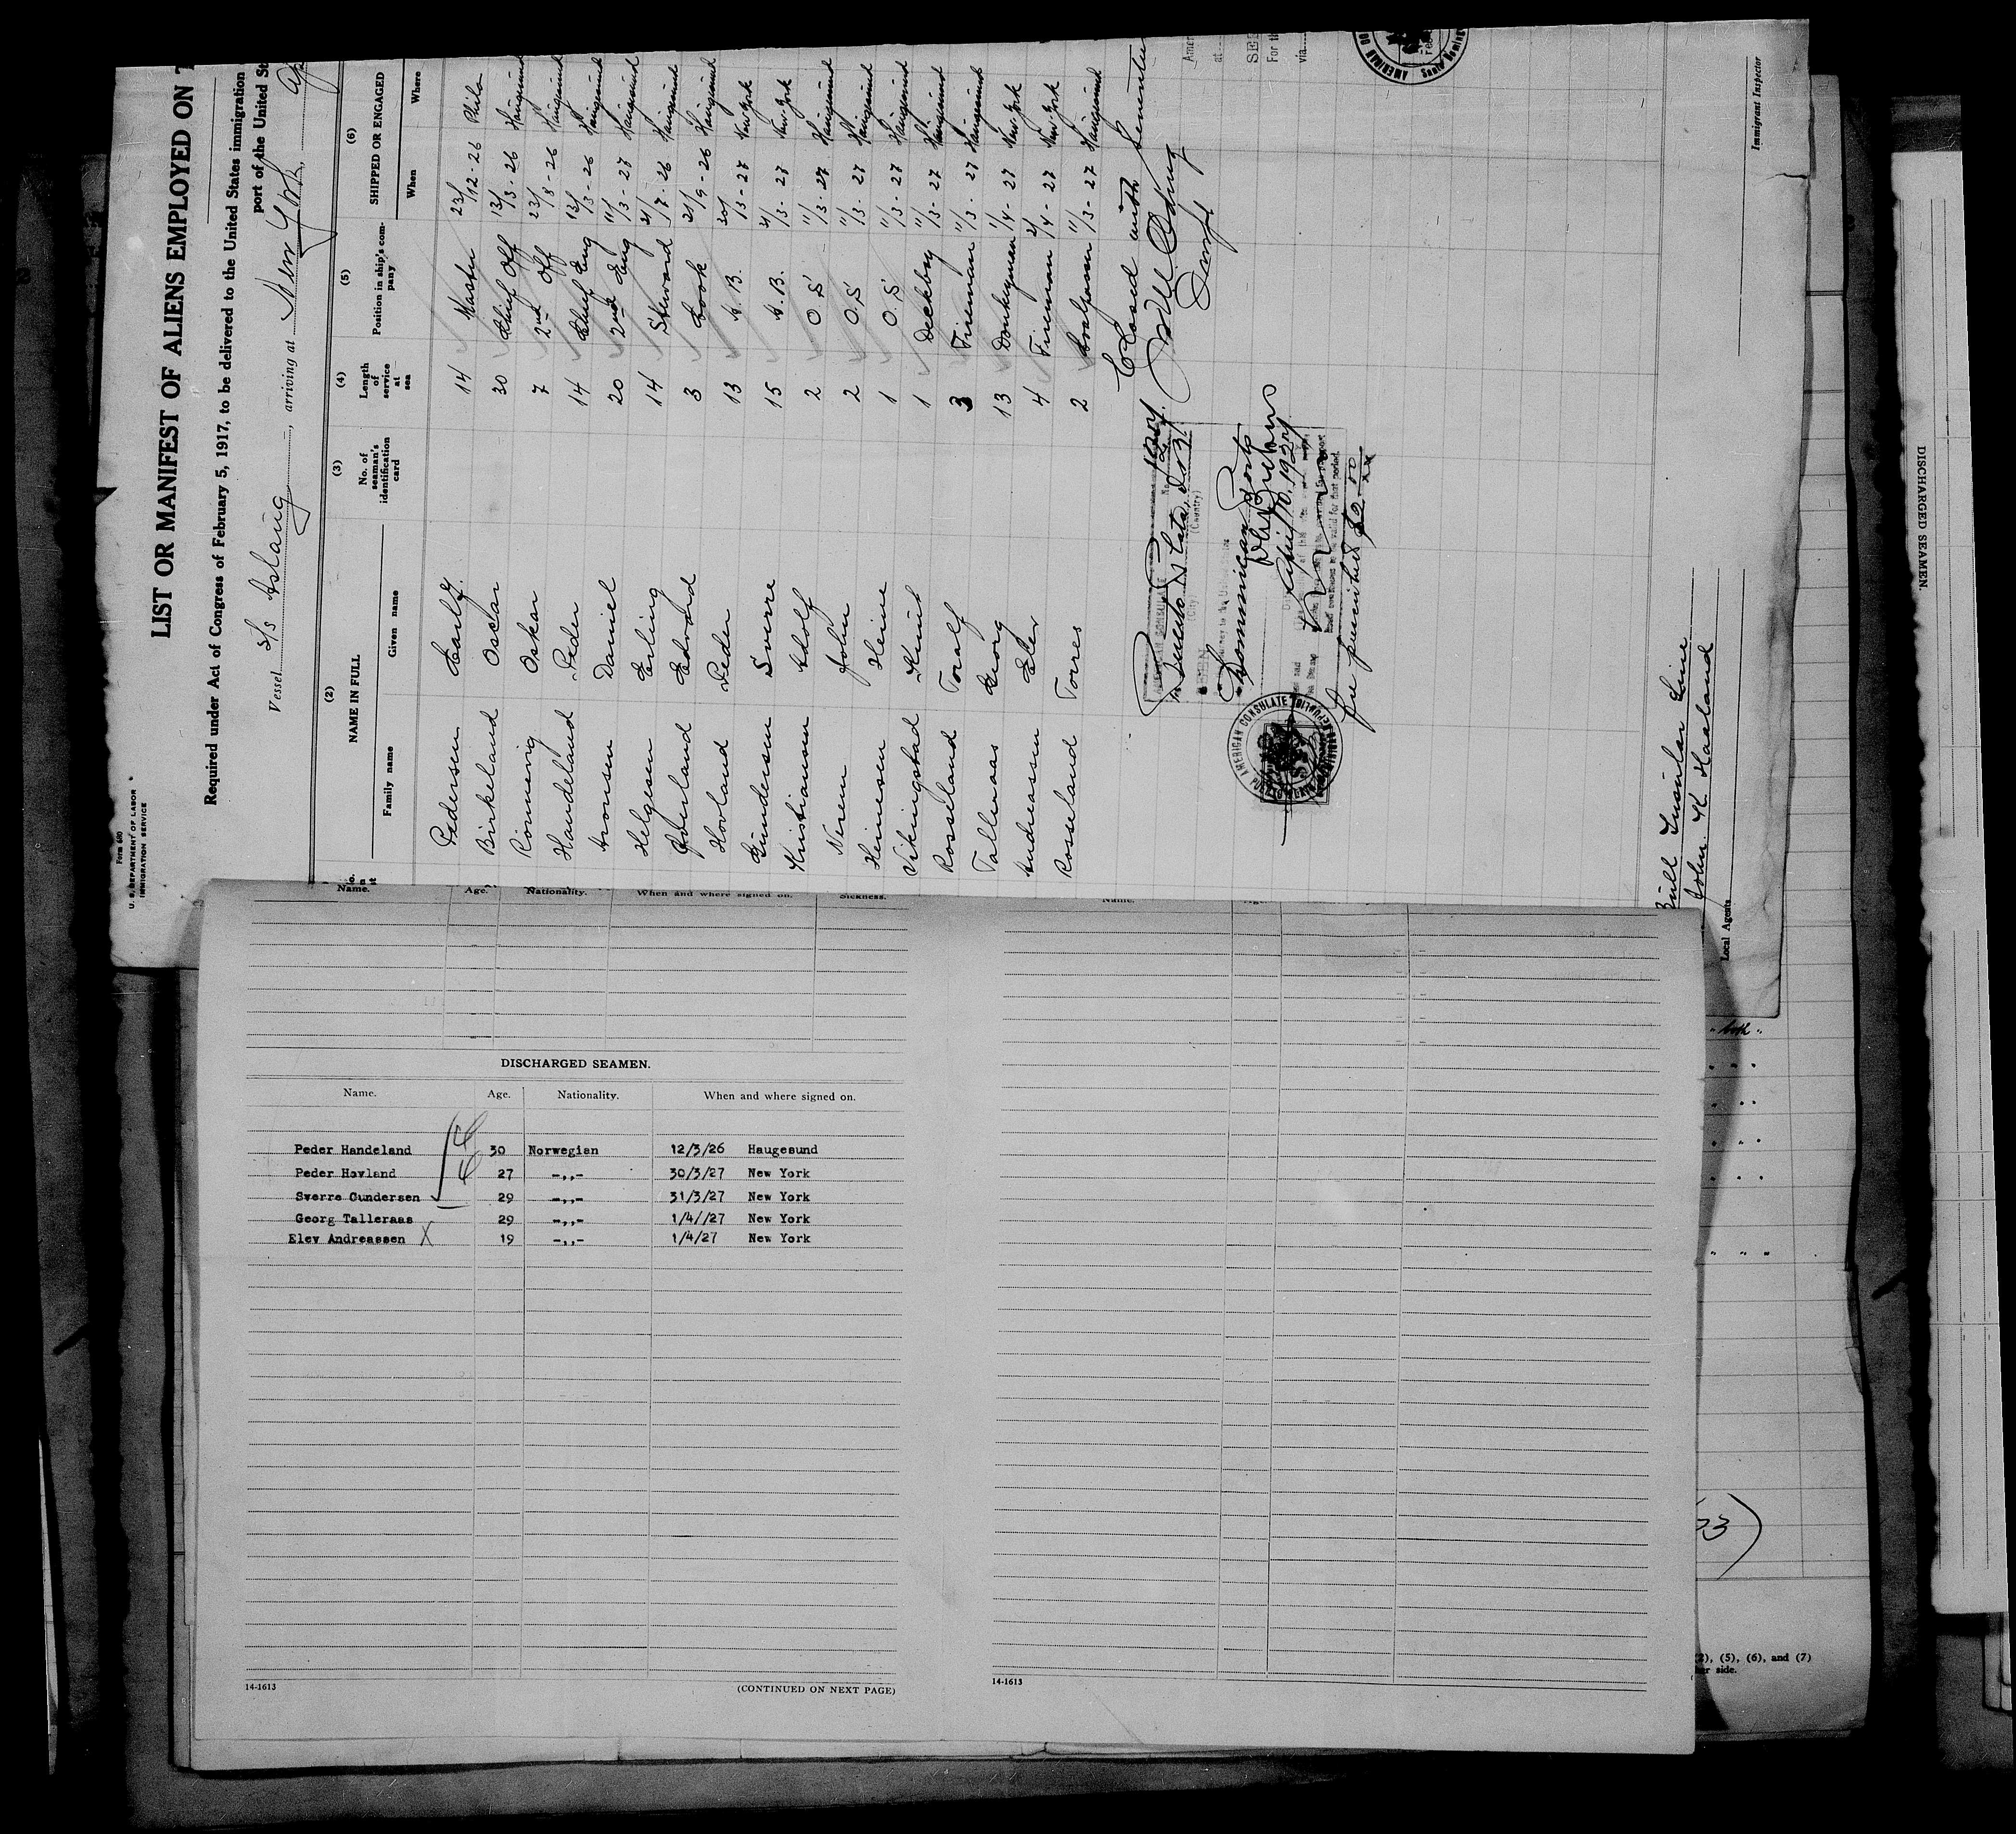 Form 680
U. S. DEPARTMENT OF LABOR
IMMIGRATION SERVICE
LIST OR MANIFEST OF ALIENS EMPLOYED ON
Required under Act of Congress of February 5, 1917, to be delivered to the United States immigration
port of the United St
Vessel S/S Aslaug, arriving at New York,
(2) (3) (4) (5) (6)
NAME IN FULL No. of seaman's identification card Length of service at sea Position in ship's company SHIPPED OR ENGAGED
Family name Given name When Where
Pedersen Carl 14 Master 23/12-26 Phila
Birkeland Oscar 30 Chief Off 13/3-26 Haugesund
Rönnevig Oskar 7 2nd Off 23/8-26 Haugesund
Handeland Peder 14 Chief Eng 13/3-26 Haugesund
Aronsen Daniel 20 2nd Eng 11/3-27 Haugesund
Helgesen Erling 14 Steward 21/7-26 Haugesund
Edvard 3 Cook 21/9-26 Haugesund
Hovland Peder 13 A.B. 30/3-27 New York
Gundersen Sverre 15 A.B. 31/3-27 New York
Kristiansen Adolf 2 O.S 11/3-27 Haugesund
John 2 O.S 11/3-27 Haugesund
Heinesen Heine 1 O.S 11/3-27 Haugesund
Vikingstad Knut 1 Deckboy 11/3-27 Haugesund
Rosseland Toralf 3 Fireman 11/3-27 Haugesund
Talleraas Georg 13 Donkeyman 1/4-27 New York
Andreassen Elev 4 Fireman 2/4-27 New York
Rosseland Torres 2 Coalpasser 11/3-27 Haugesund
Closed with Seventeen
AMERICAN CONSULATE
(City) (Country)
Dominican Ports
April 10, 1927
Fee prescribed $2.00
AMERICAN CONSULATE
Bull Insular Line
John K Haaland
Local Agents
Immigrant Inspector
Name. Age. Nationality. When and where signed on. Sickness.
Name.
DISCHARGED SEAMEN.
Name. Age. Nationality. When and where signed on.
Peder Handeland 30 Norwegian 12/3/26 Haugesund
Peder Hovland 27 -,,- 30/3/27 New York
Sverre Gundersen 29 -,,- 31/3/27 New York
Georg Talleraas 29 -,,- 1/4//27 New York
Elev Andreassen X 19 -,,- 1/4/27 New York
14-1613
(CONTINUED ON NEXT PAGE)
14-1613
(2), (5), (6), and (7)
her side.
DISCHARGED SEAMEN.